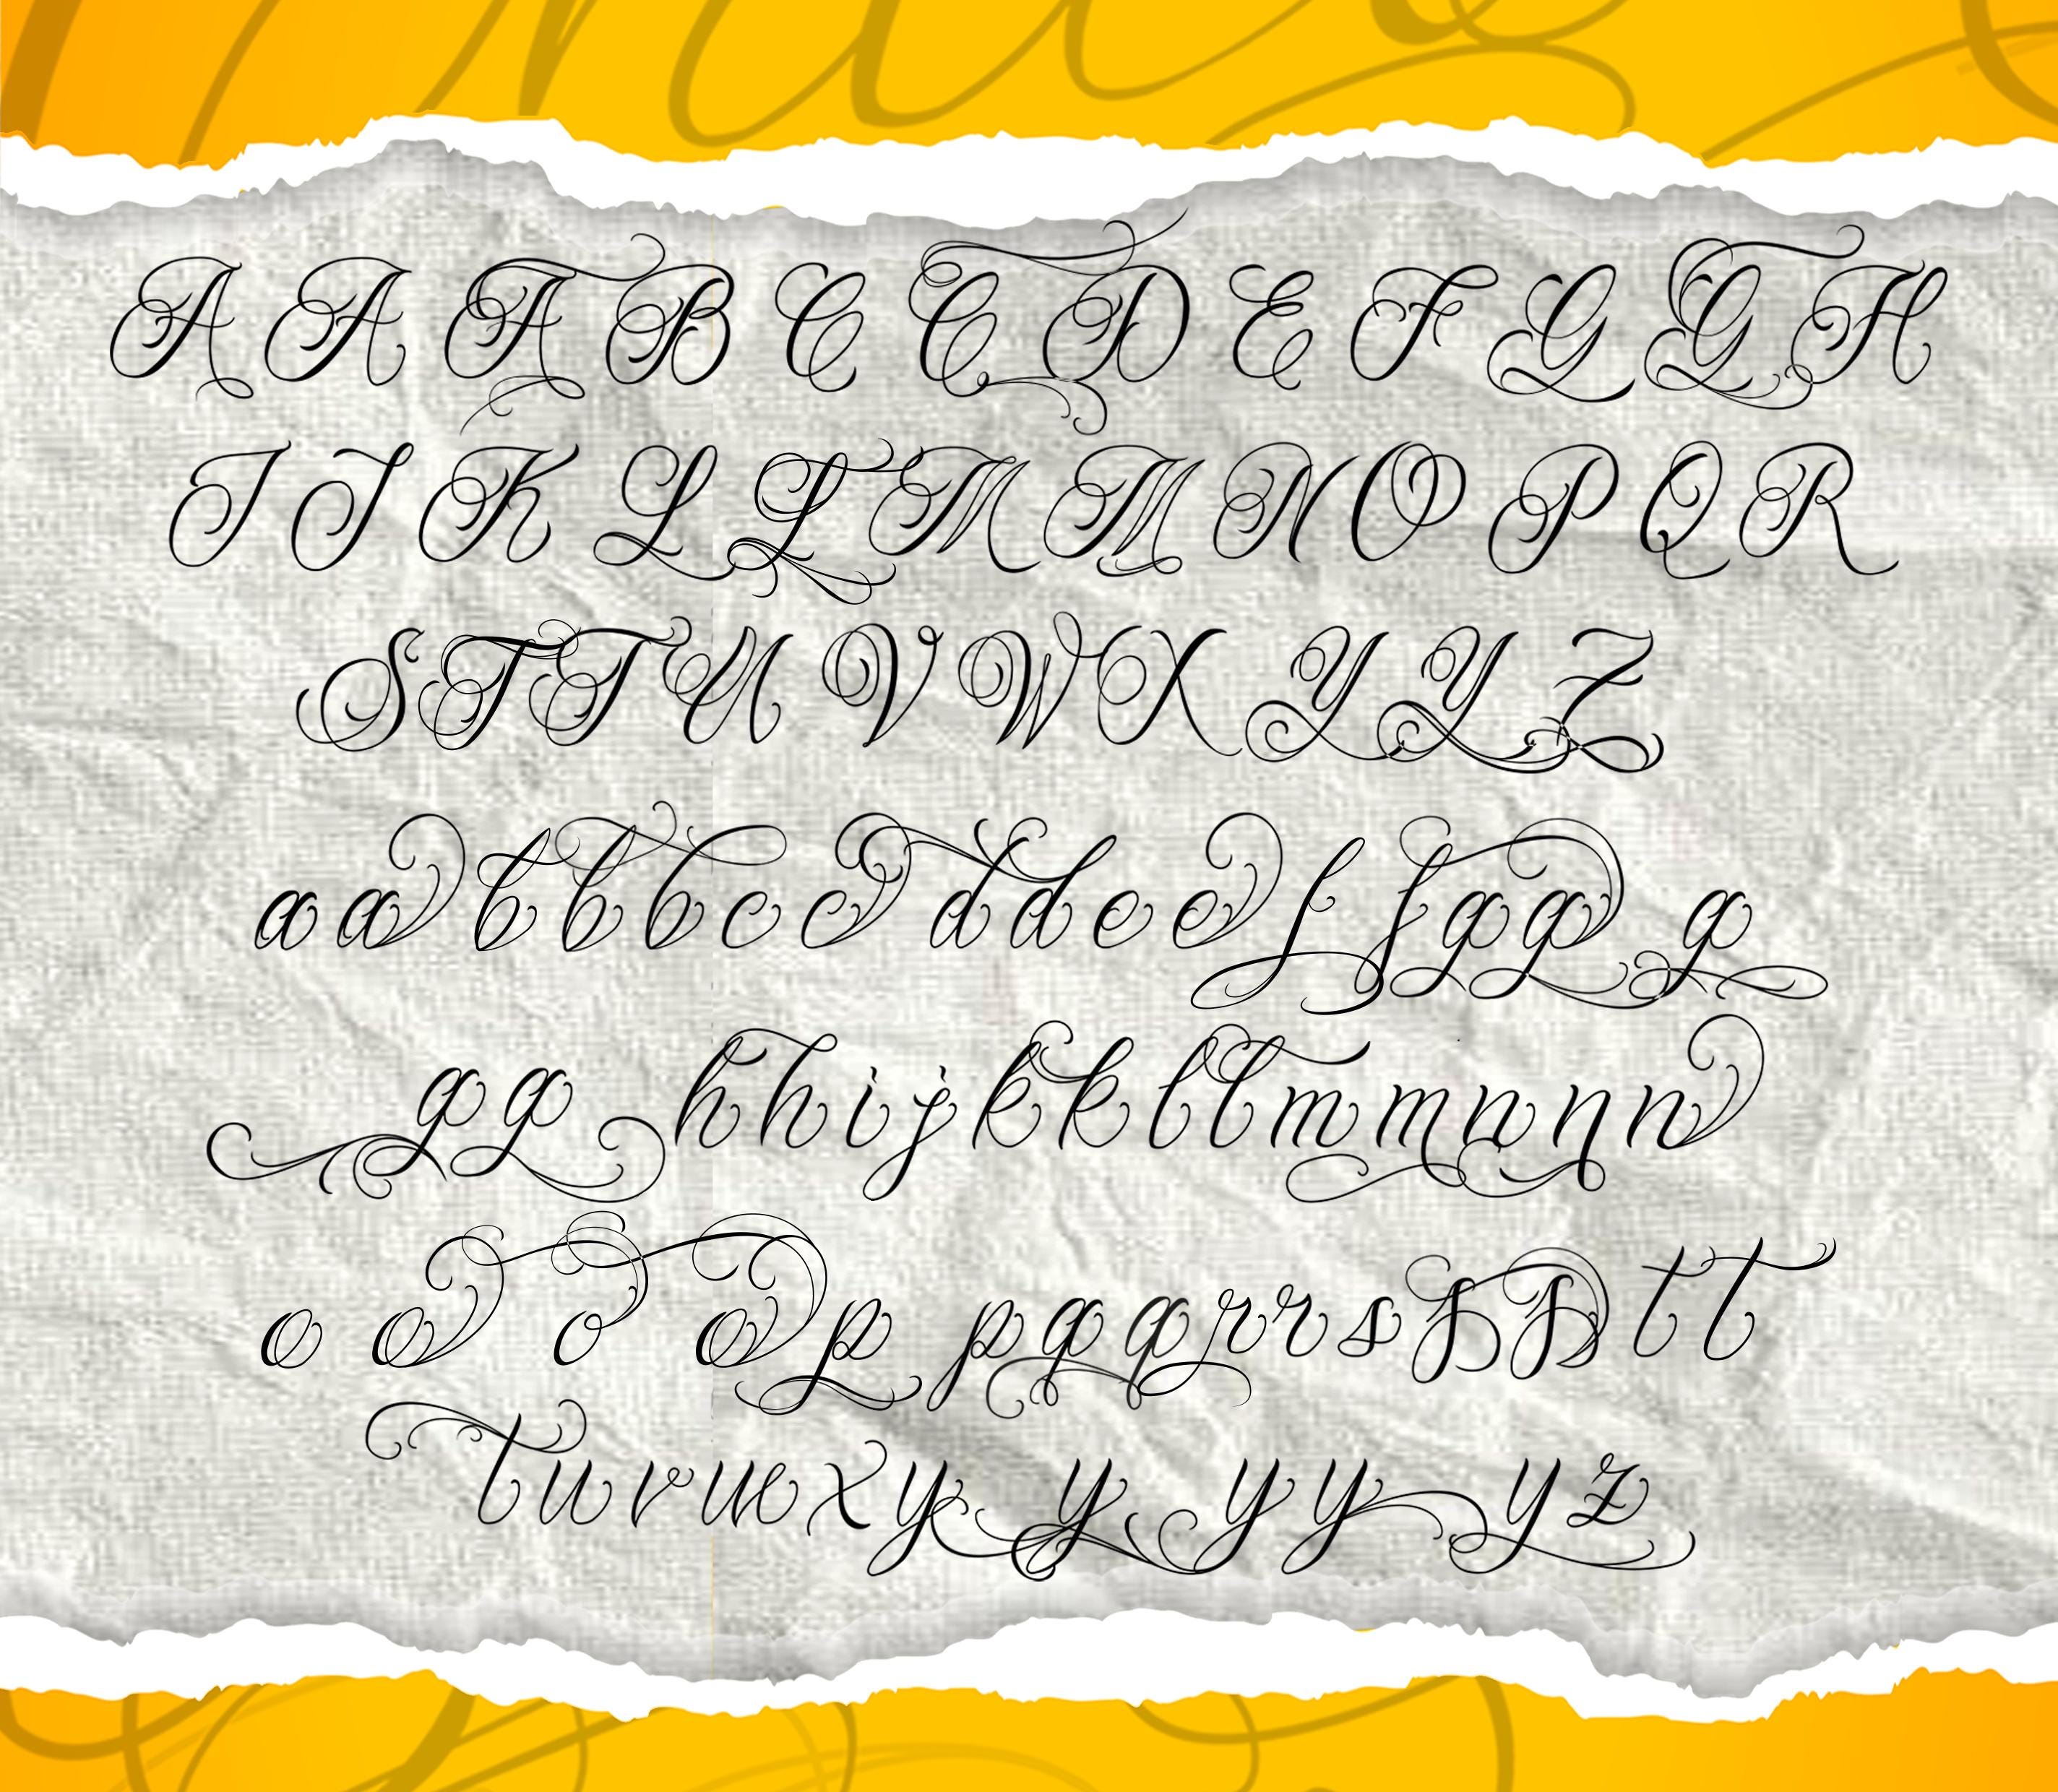 A A A B C C D E F G G H
I J K L L M M N O P Q R
S T T U V W X Y Y Z
a a b b b c c d d e e f f g g g
g g h h i j k k l l m m n n n
o o o o p p q q r r s s s t t
t u v w x y y y y y z